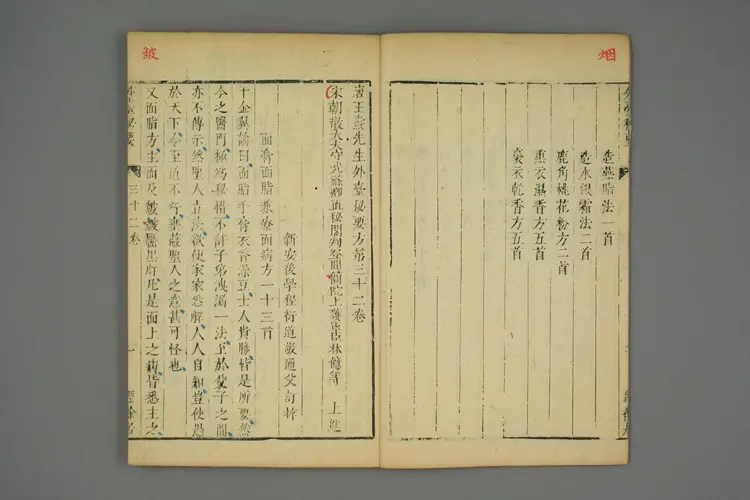 烟
造燕脂法一首
造水銀霜法二首
鹿角桃花粉方二首
熏衣濕香方五首
裛衣乾香方五首
唐王燾先生外臺秘要方第三十二卷
宋朝散大夫守光祿卿直秘閣判登聞簡院上護軍臣林億等 上進
新安後學程衍道敬通父訂梓
面膏面脂兼療面病方一十三首
千金翼論曰面脂手膏衣香澡豆士人貴勝皆是所要然
今之醫門極為秘惜不許子弟洩漏一法至於父子之間
亦不傳示然聖人立法欲使家家悉解人人自知豈使愚
於天下令至道不行壅蔽聖人之意甚可怪也
又面脂方主面及皴皺黶黑皯凡是面上之疾皆悉主之
三十二卷
一
皴